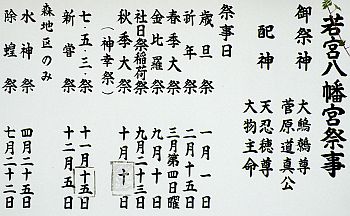 若宮八幡宮祭事
御祭神 大鷦鷯尊
菅原道真公
配神 天忍穂尊
大物主命
祭事日
歳旦祭 一月一日
祈年祭 二月十五日
春季大祭 三月第四日曜
金比羅祭 九月十日
社日祭稲荷祭 九月二十三日
秋季大祭 十月十日
(神幸祭)
七・五・三・祭 十一月十五日
新嘗祭 十二月五日
森地区のみ
水神祭 四月二十五日
除蝗祭 七月二十二日